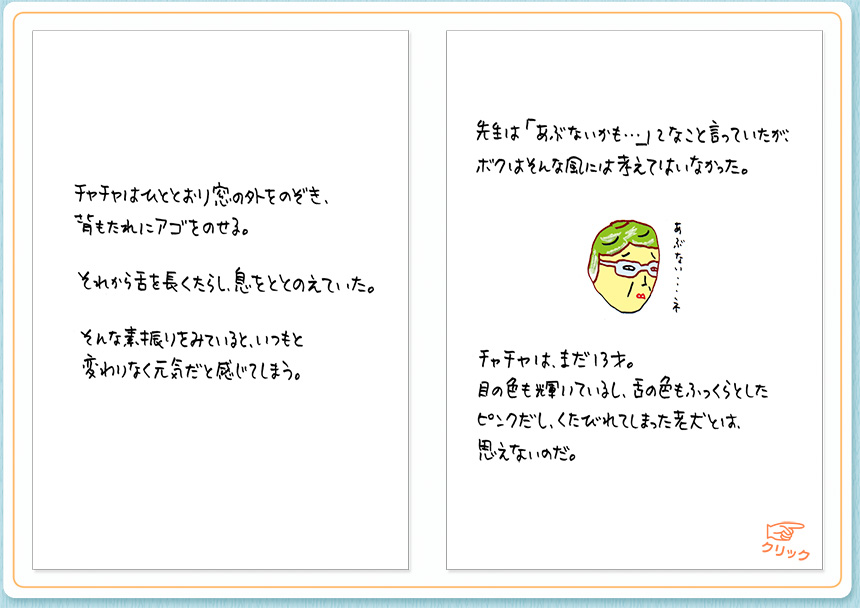 チャチャはひととおり窓の外をのぞき、
背もたれにアゴをのせる。
それから舌を長くたらし、息をととのえていた。
そんな素振りをみていると、いつもと
変わりなく元気だと感じてしまう。
先生は「あぶないかも…」てなこと言っていたが、
ボクはそんな風には考えてはいなかった。
あぶない…ネ
チャチャは、まだ13才。
目の色も輝いているし、舌の色もふっくらとした
ピンクだし、くたびれてしまった老犬とは、
思えないのだ。
クリック